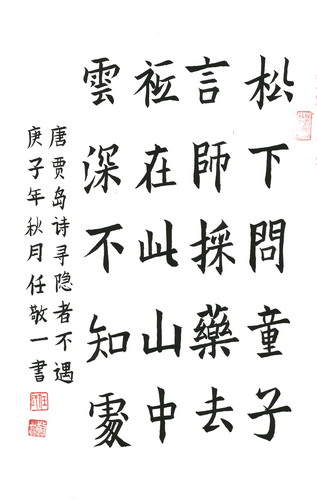 松下問童子
言師採藥去
祗在此山中
雲深不知處
唐贾岛诗寻隐者不遇
庚子年秋月任敬一書